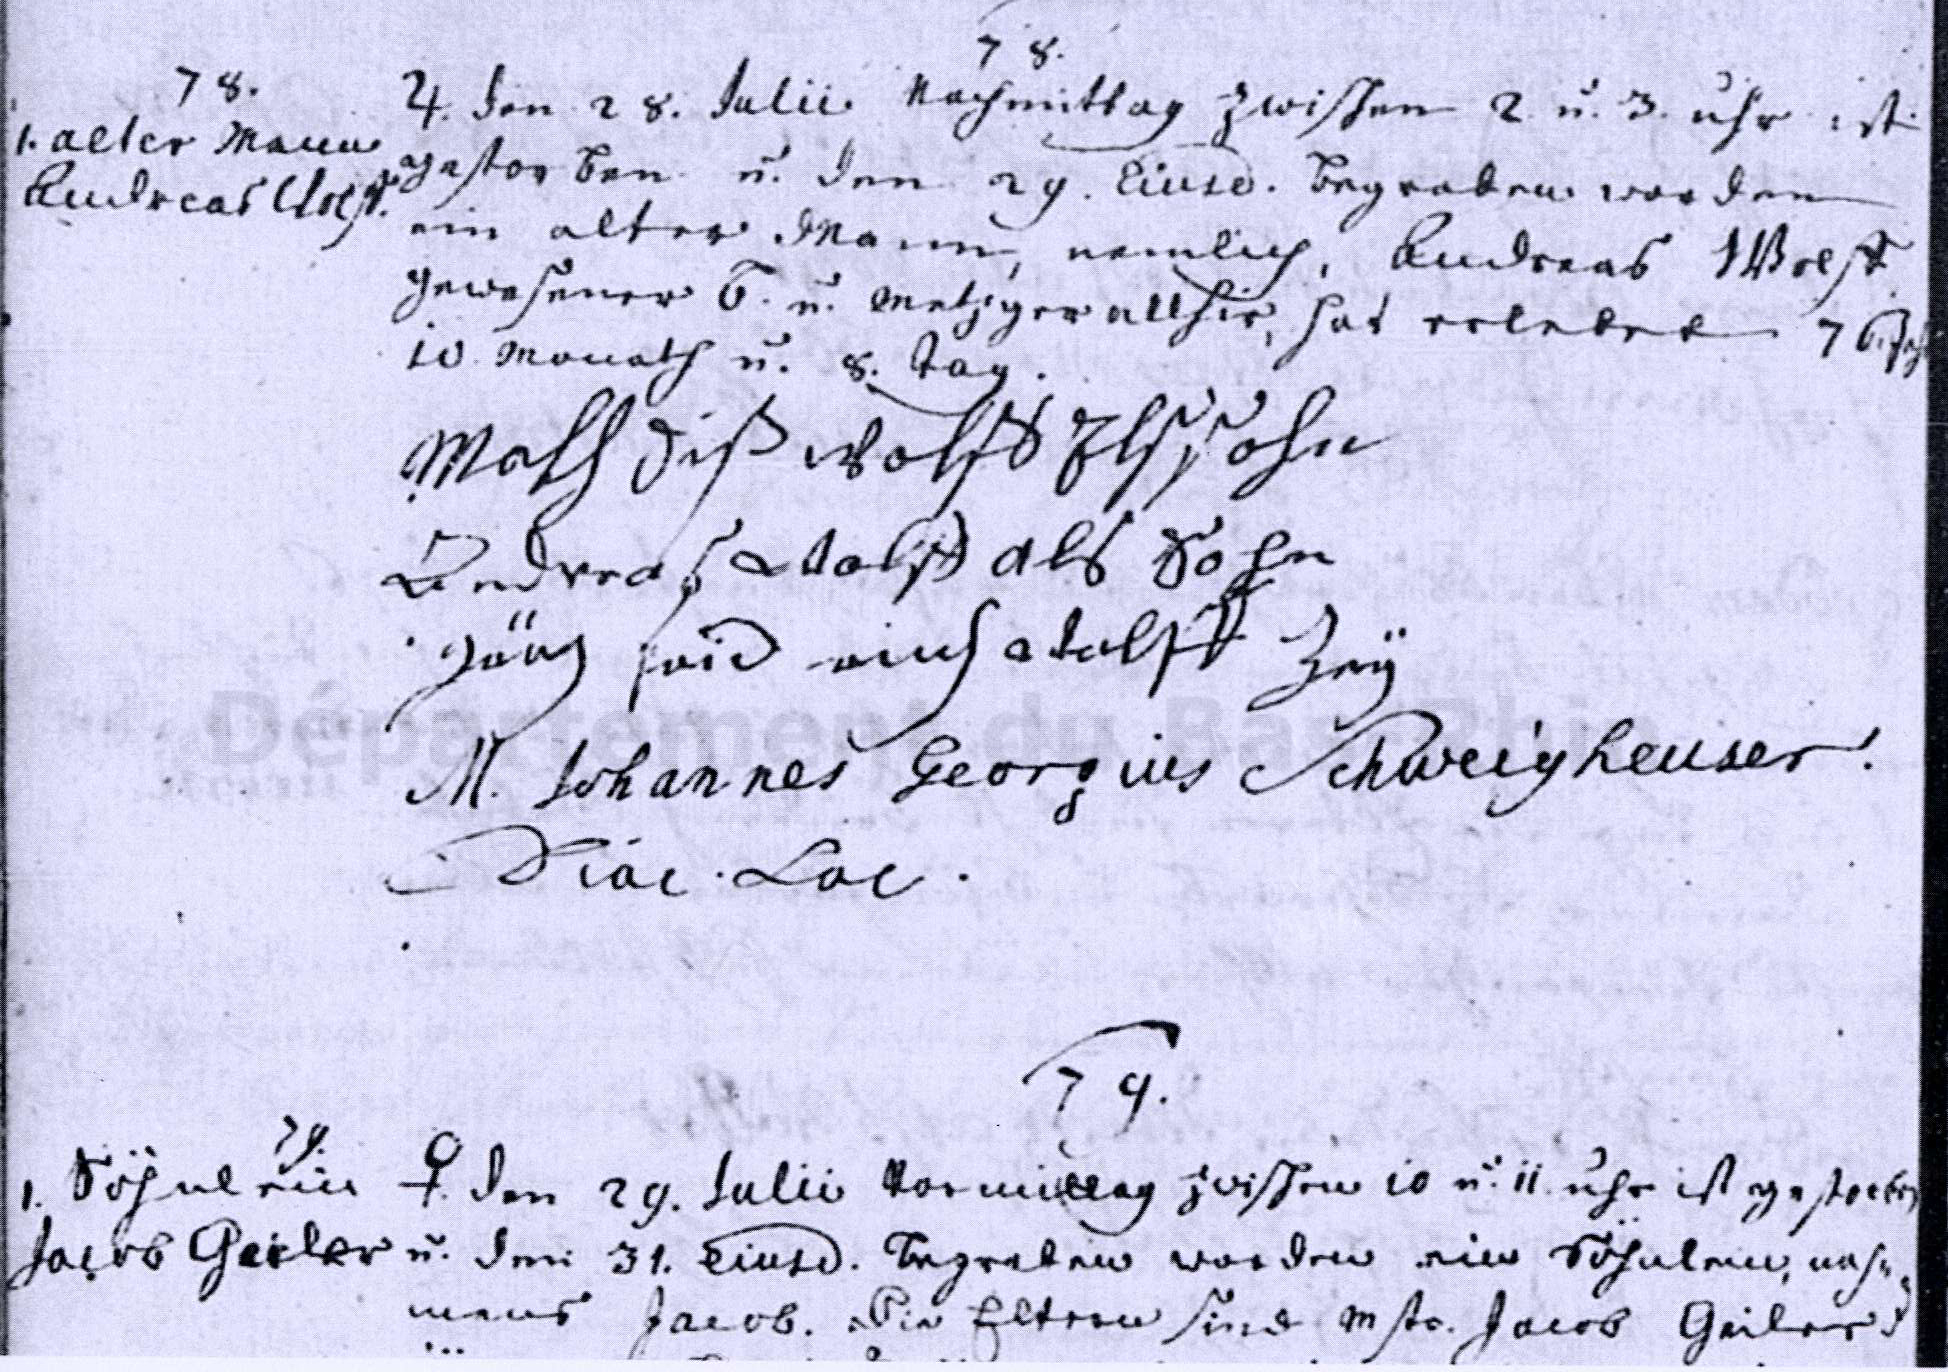 78.
78.
1. alter Mann
Andreas Wolff.
♃. den 28. Julii Nachmittag zwischen 2. u. 3. uhr ist
gestorben u. den 29. Eiusd. begraben worden
ein alter Mann, nemlich, Andreas Wolff
gewesener b. u. Metzger allhir, hat erlebet 76. Jahr
10 Monath u. 8. Tag.
Mathdiß wolff Als sohn
Andreas Wolff als Sohn
wolff Zeÿ
M. Johannes Georgius Schweigheuser.
Diac. Loc.
Département du Bas-Rhin
79.
79.
1. Söhnlein
Jacob Geiler
♀. den 29. Julii Vormittag zwischen 10 u. 11. uhr ist gestorben
u. den 31. Eiusd. begraben worden ein Söhnlein, nah-
mens Jacob. Die Eltern sind Mstr. Jacob Geiler